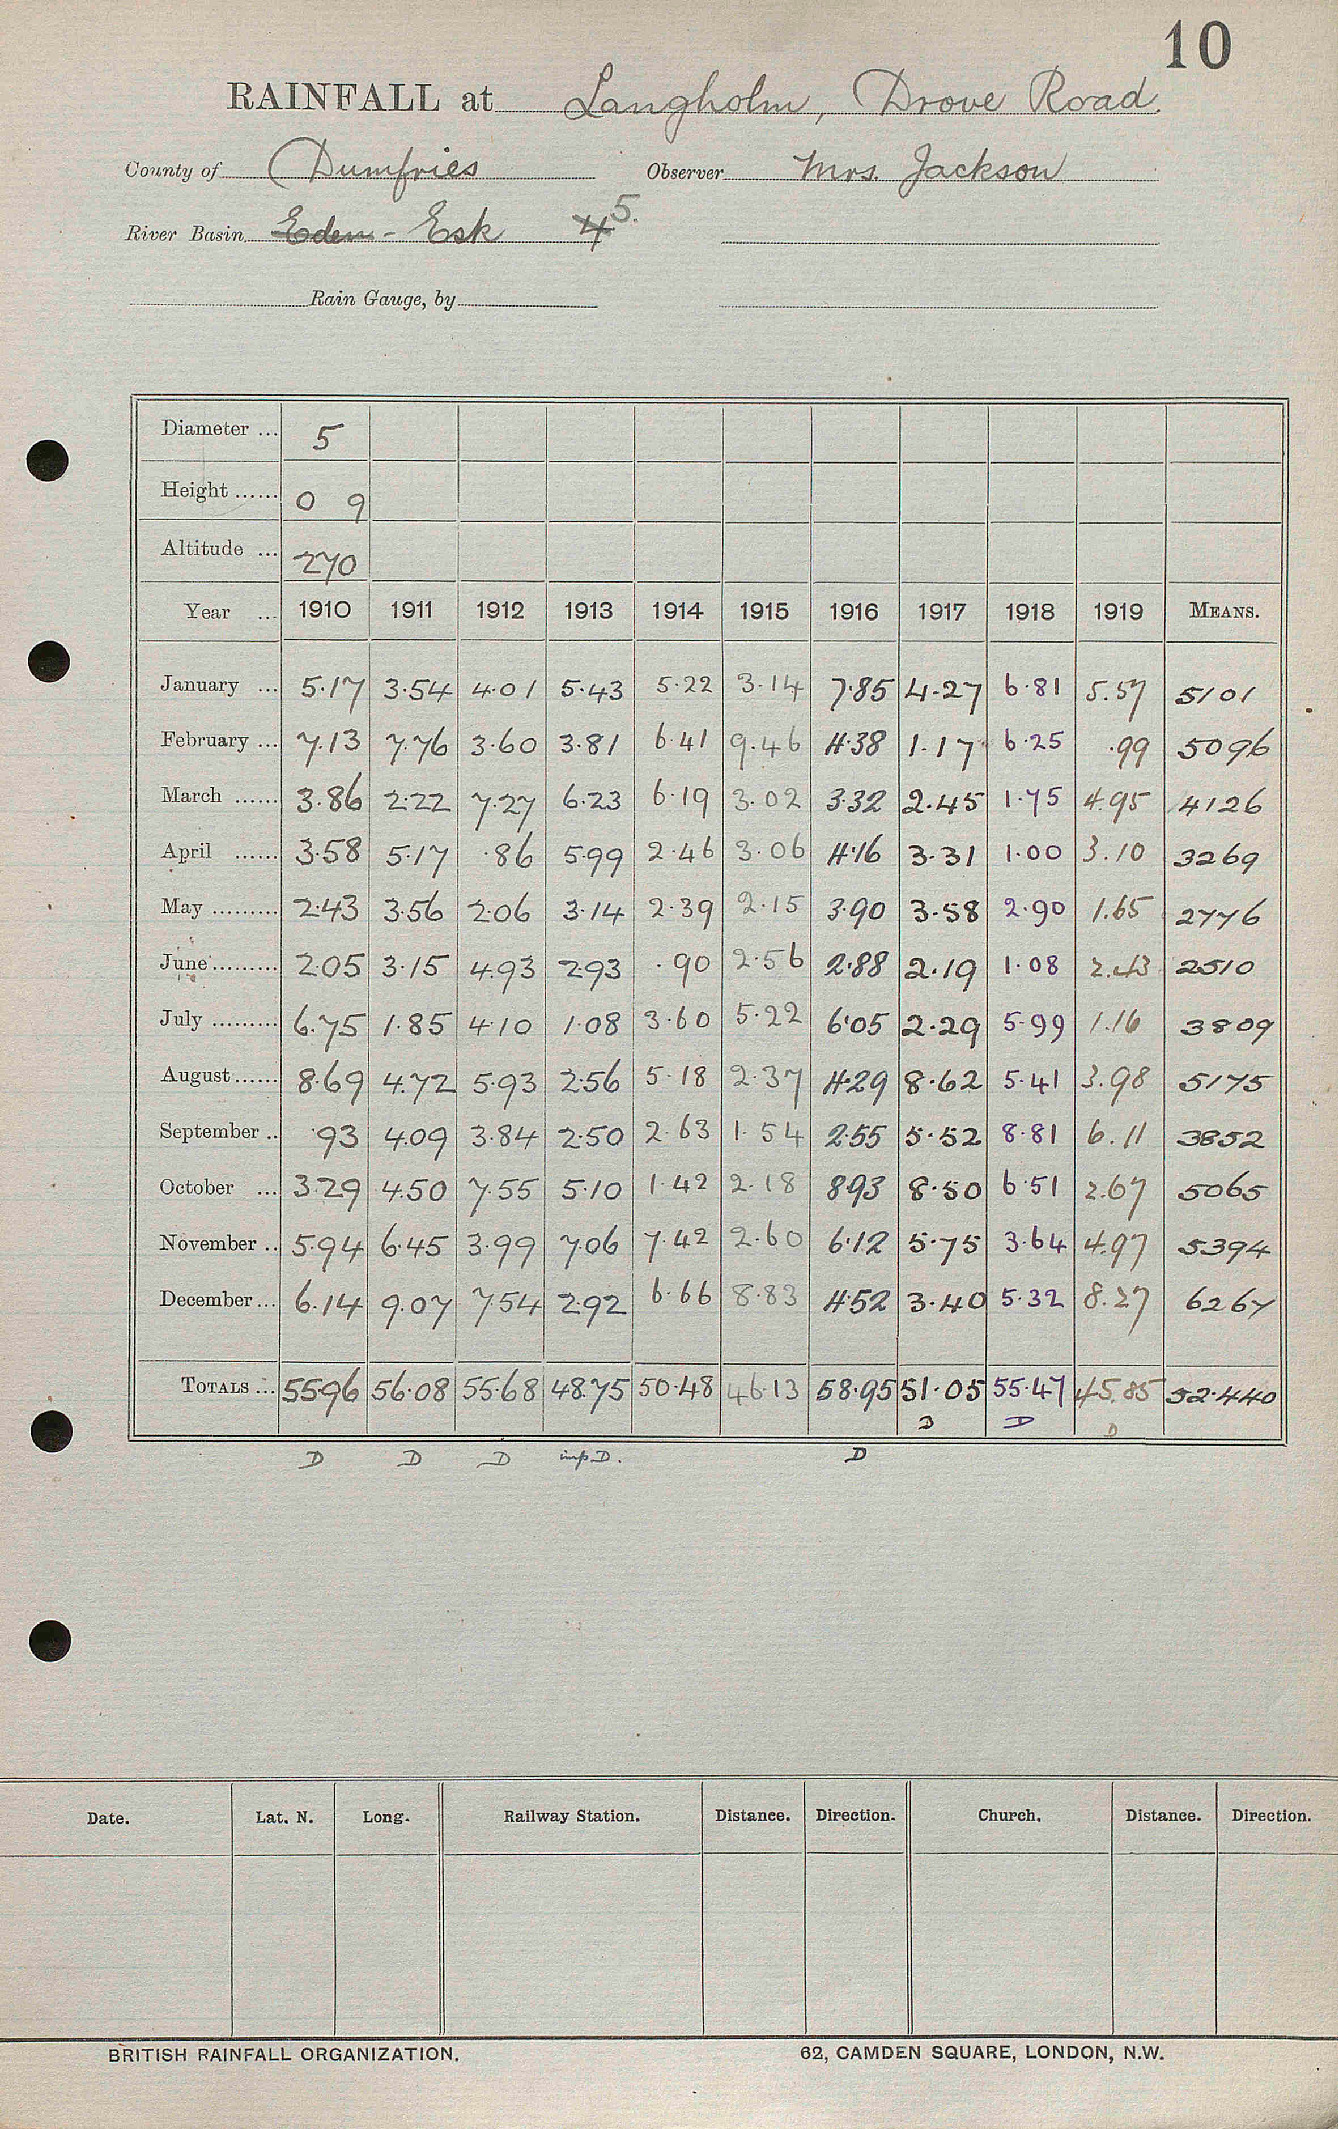 10
RAINFALL at Langholm, Drove Road.
County of Dumfries Observer Mrs. Jackson
River Basin Eden - Esk 4 5.
Rain Gauge, by
Diameter ... 5
Height ...... 0 9
Altitude ... 270
Year ... 1910 1911 1912 1913 1914 1915 1916 1917 1918 1919 MEANS.
January ... 5.17 3.54 4.01 5.43 5.22 3.14 7.85 4.27 6.81 5.57 5101
February ... 7.13 7.76 3.60 3.81 6.41 9.46 4.38 1.17 6.25 .99 5096
March ...... 3.86 2.22 7.27 6.23 6.19 3.02 3.32 2.45 1.75 4.95 4126
April ...... 3.58 5.17 .86 5.99 2.46 3.06 4.16 3.31 1.00 3.10 3269
May ......... 2.43 3.56 2.06 3.14 2.39 2.15 3.90 3.58 2.90 1.65 2776
June ......... 2.05 3.15 4.93 2.93 .90 2.56 2.88 2.19 1.08 2.43 2510
July ......... 6.75 1.85 4.10 1.08 3.60 5.22 6.05 2.29 5.99 1.16 3809
August ...... 8.69 4.72 5.93 2.56 5.18 2.37 4.29 8.62 5.41 3.98 5175
September .. .93 4.09 3.84 2.50 2.63 1.54 2.55 5.52 8.81 6.11 3852
October ... 3.29 4.50 7.55 5.10 1.42 2.18 8.93 8.50 6.51 2.67 5065
November .. 5.94 6.45 3.99 7.06 7.42 2.60 6.12 5.75 3.64 4.97 5394
December ... 6.14 9.07 7.54 2.92 6.66 8.83 4.52 3.40 5.32 8.27 6267
TOTALS ... 55.96 56.08 55.68 48.75 50.48 46.13 58.95 51.05 55.47 45.85 52.440
D D D
D D D imp D. D
Date. Lat. N. Long. Railway Station. Distance. Direction. Church. Distance. Direction.
BRITISH RAINFALL ORGANIZATION. 62, CAMDEN SQUARE, LONDON, N.W.